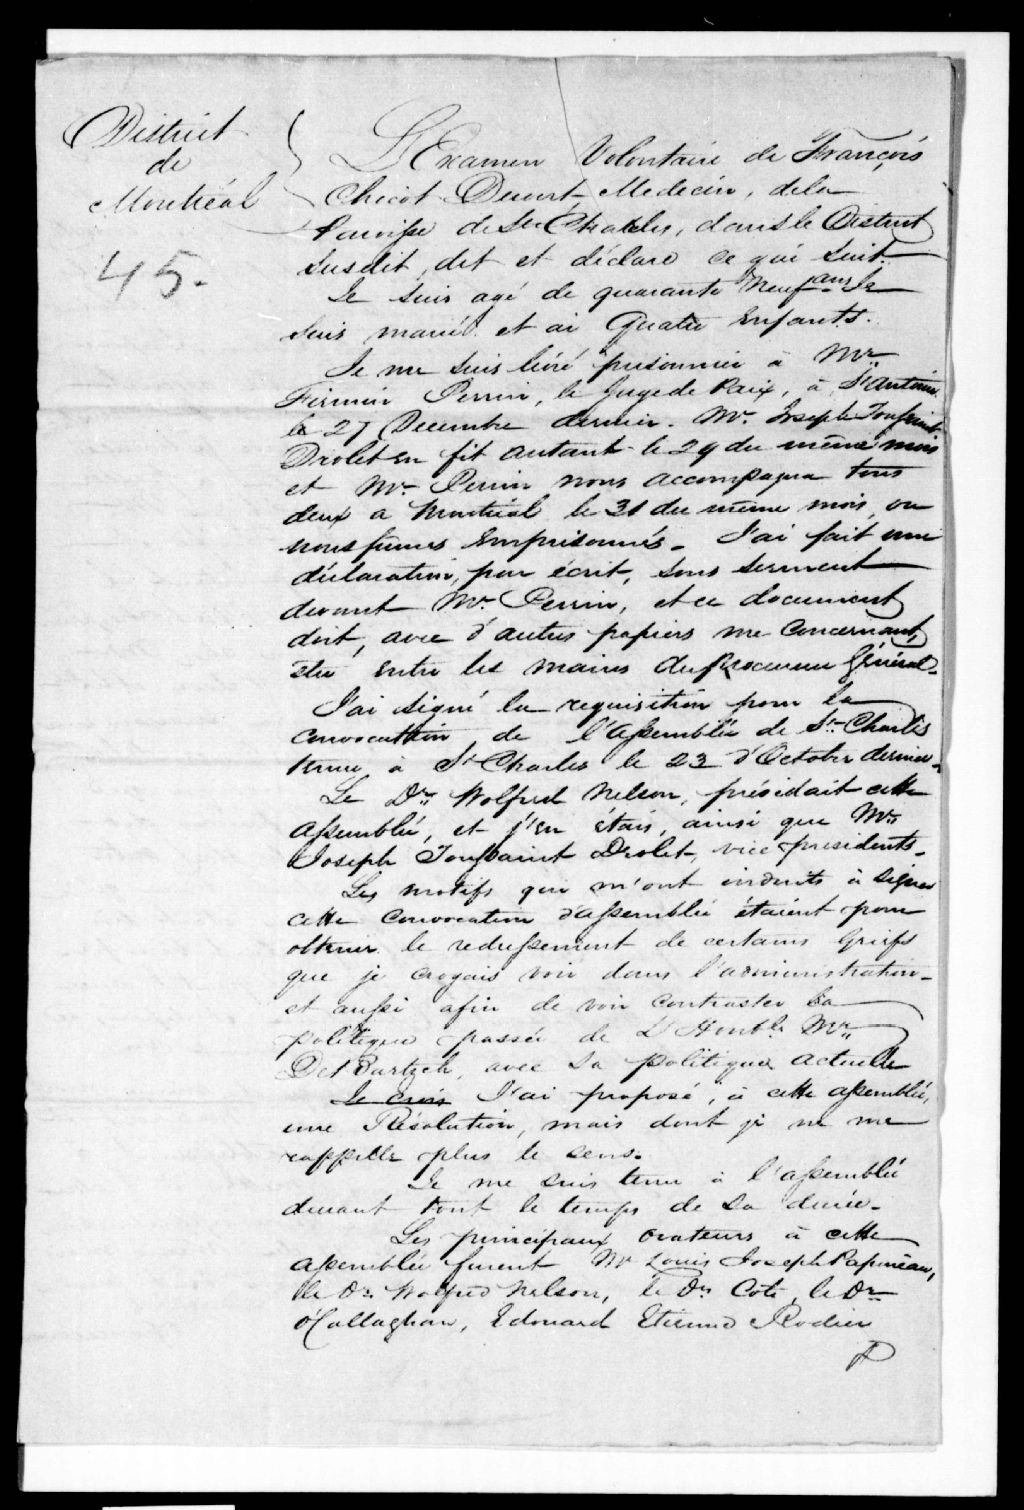 District
de
Montréal
45.
L'Examen Volontaire de François
Chicot Duvert, Medecin, de la
Paroisse de St. Charles, dans le District
susdit, dit et déclare ce qui suit.
Je suis agé de quarante neuf ans. Je
suis marié et ai Quatre enfants.
Je me suis livré prisonnier à Mr.
Firmin Perrin, le Juge de Paix, à St Antoine
le 27 Decembre dernier. Mr. Joseph Toussaint
Drolet en fit autant le 29 du même mois
et Mr. Perrin nous accompagna tous
deux a Montréal le 31 du même mois, ou
nous fumes emprisonnés. J'ai fait une
déclaration, par écrit, sous serment
devant Mr. Perrin, et ce document
doit, avec d'autres papiers me concernant,
être entre les mains du Procureur Général.
J'ai signé la requisition pour la
convocation de l'Assemblée de St. Charles
tenue à St Charles le 23 d'Octobre dernier.
Le Dr. Wolfred Nelson, présidait cette
assemblée, et j'en étais, ainsi que Mr.
Joseph Toussaint Drolet, vice presidents.
Les motifs qui m'ont induits à signer
cette convocation d'assemblée étaient pour
obtenir le redressement de certains Griefs
que je croyais voir dans l'administration
et aussi afin de voir contraster la
politique passée de L'Honble. Mr.
Debartzch, avec sa politique actuelle
Je crois J'ai proposé, à cette assemblée,
une Résolution, mais dont je ne me
rappelle plus le sens.
Je me suis tenu à l'assemblée
durant tout le temps de sa durée.
Les principaux orateurs à cette
assemblée furent Mr Louis Joseph Papineau,
le Dr. Wolfred Nelson, le Dr. Coté, le Dr.
O'Callaghan, Edouard Etienne Rodier